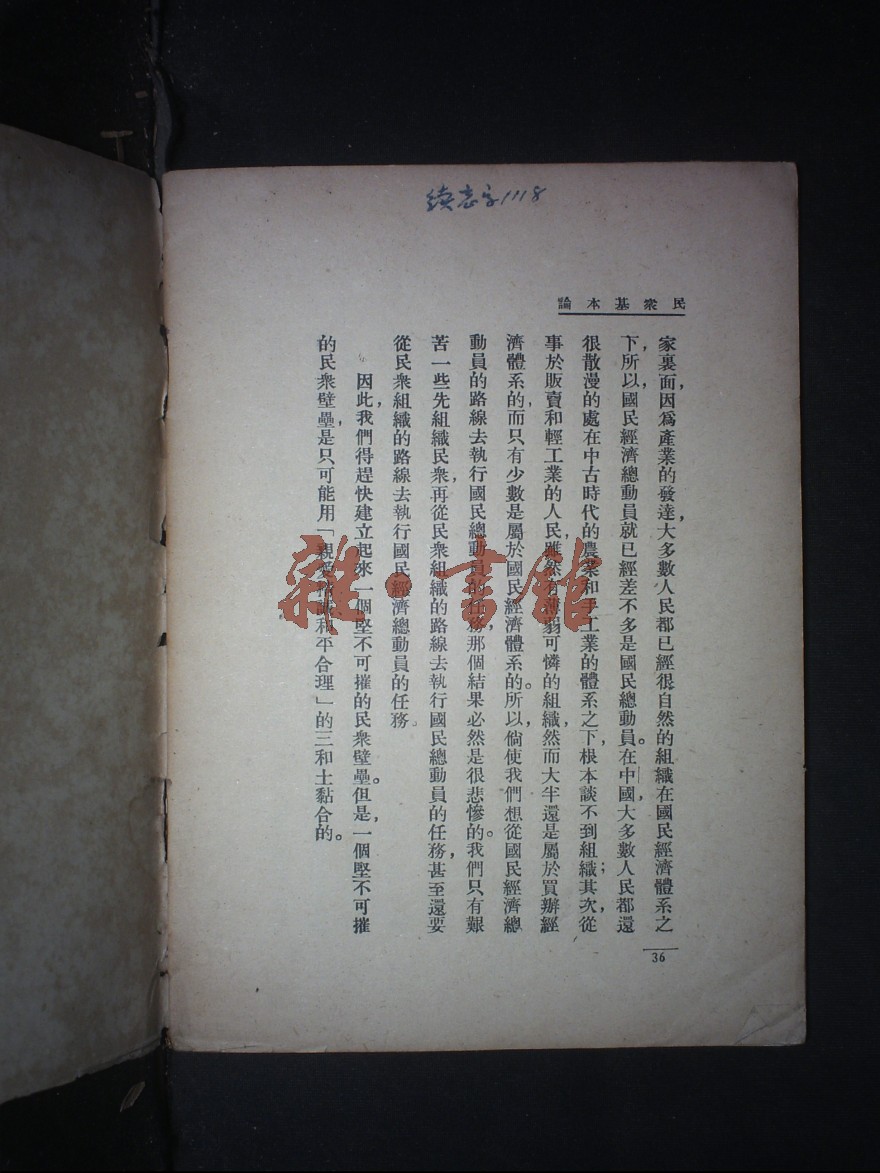 續 1118
民衆基本論
家裏面,因爲產業的發達,大多數人民都已經很自然的組織在國民經濟體系之
下,所以,國民經濟總動員就已經差不多是國民總動員。在中國,大多數人民都還
很散漫的處在中古時代的農業和手工業的體系之下,根本談不到組織;其次,從
事於販賣和輕工業的人民,雖然有薄弱可憐的組織,然而大半還是屬於買辦經
濟體系的,而只有少數是屬於國民經濟體系的。所以,倘使我們想從國民經濟總
動員的路線去執行國民總動員的任務,那個結果必然是很悲慘的。我們只有艱
苦一些,先組織民衆,再從民衆組織的路線去執行國民總動員的任務,甚至還要
從民衆組織的路線去執行國民經濟總動員的任務。
因此,我們得趕快建立起來一個堅不可摧的民衆壁壘。但是,一個堅不可摧
的民衆壁壘,是只可能用「親愛精誠和平合理」的三和土黏合的。
36
雜·書館